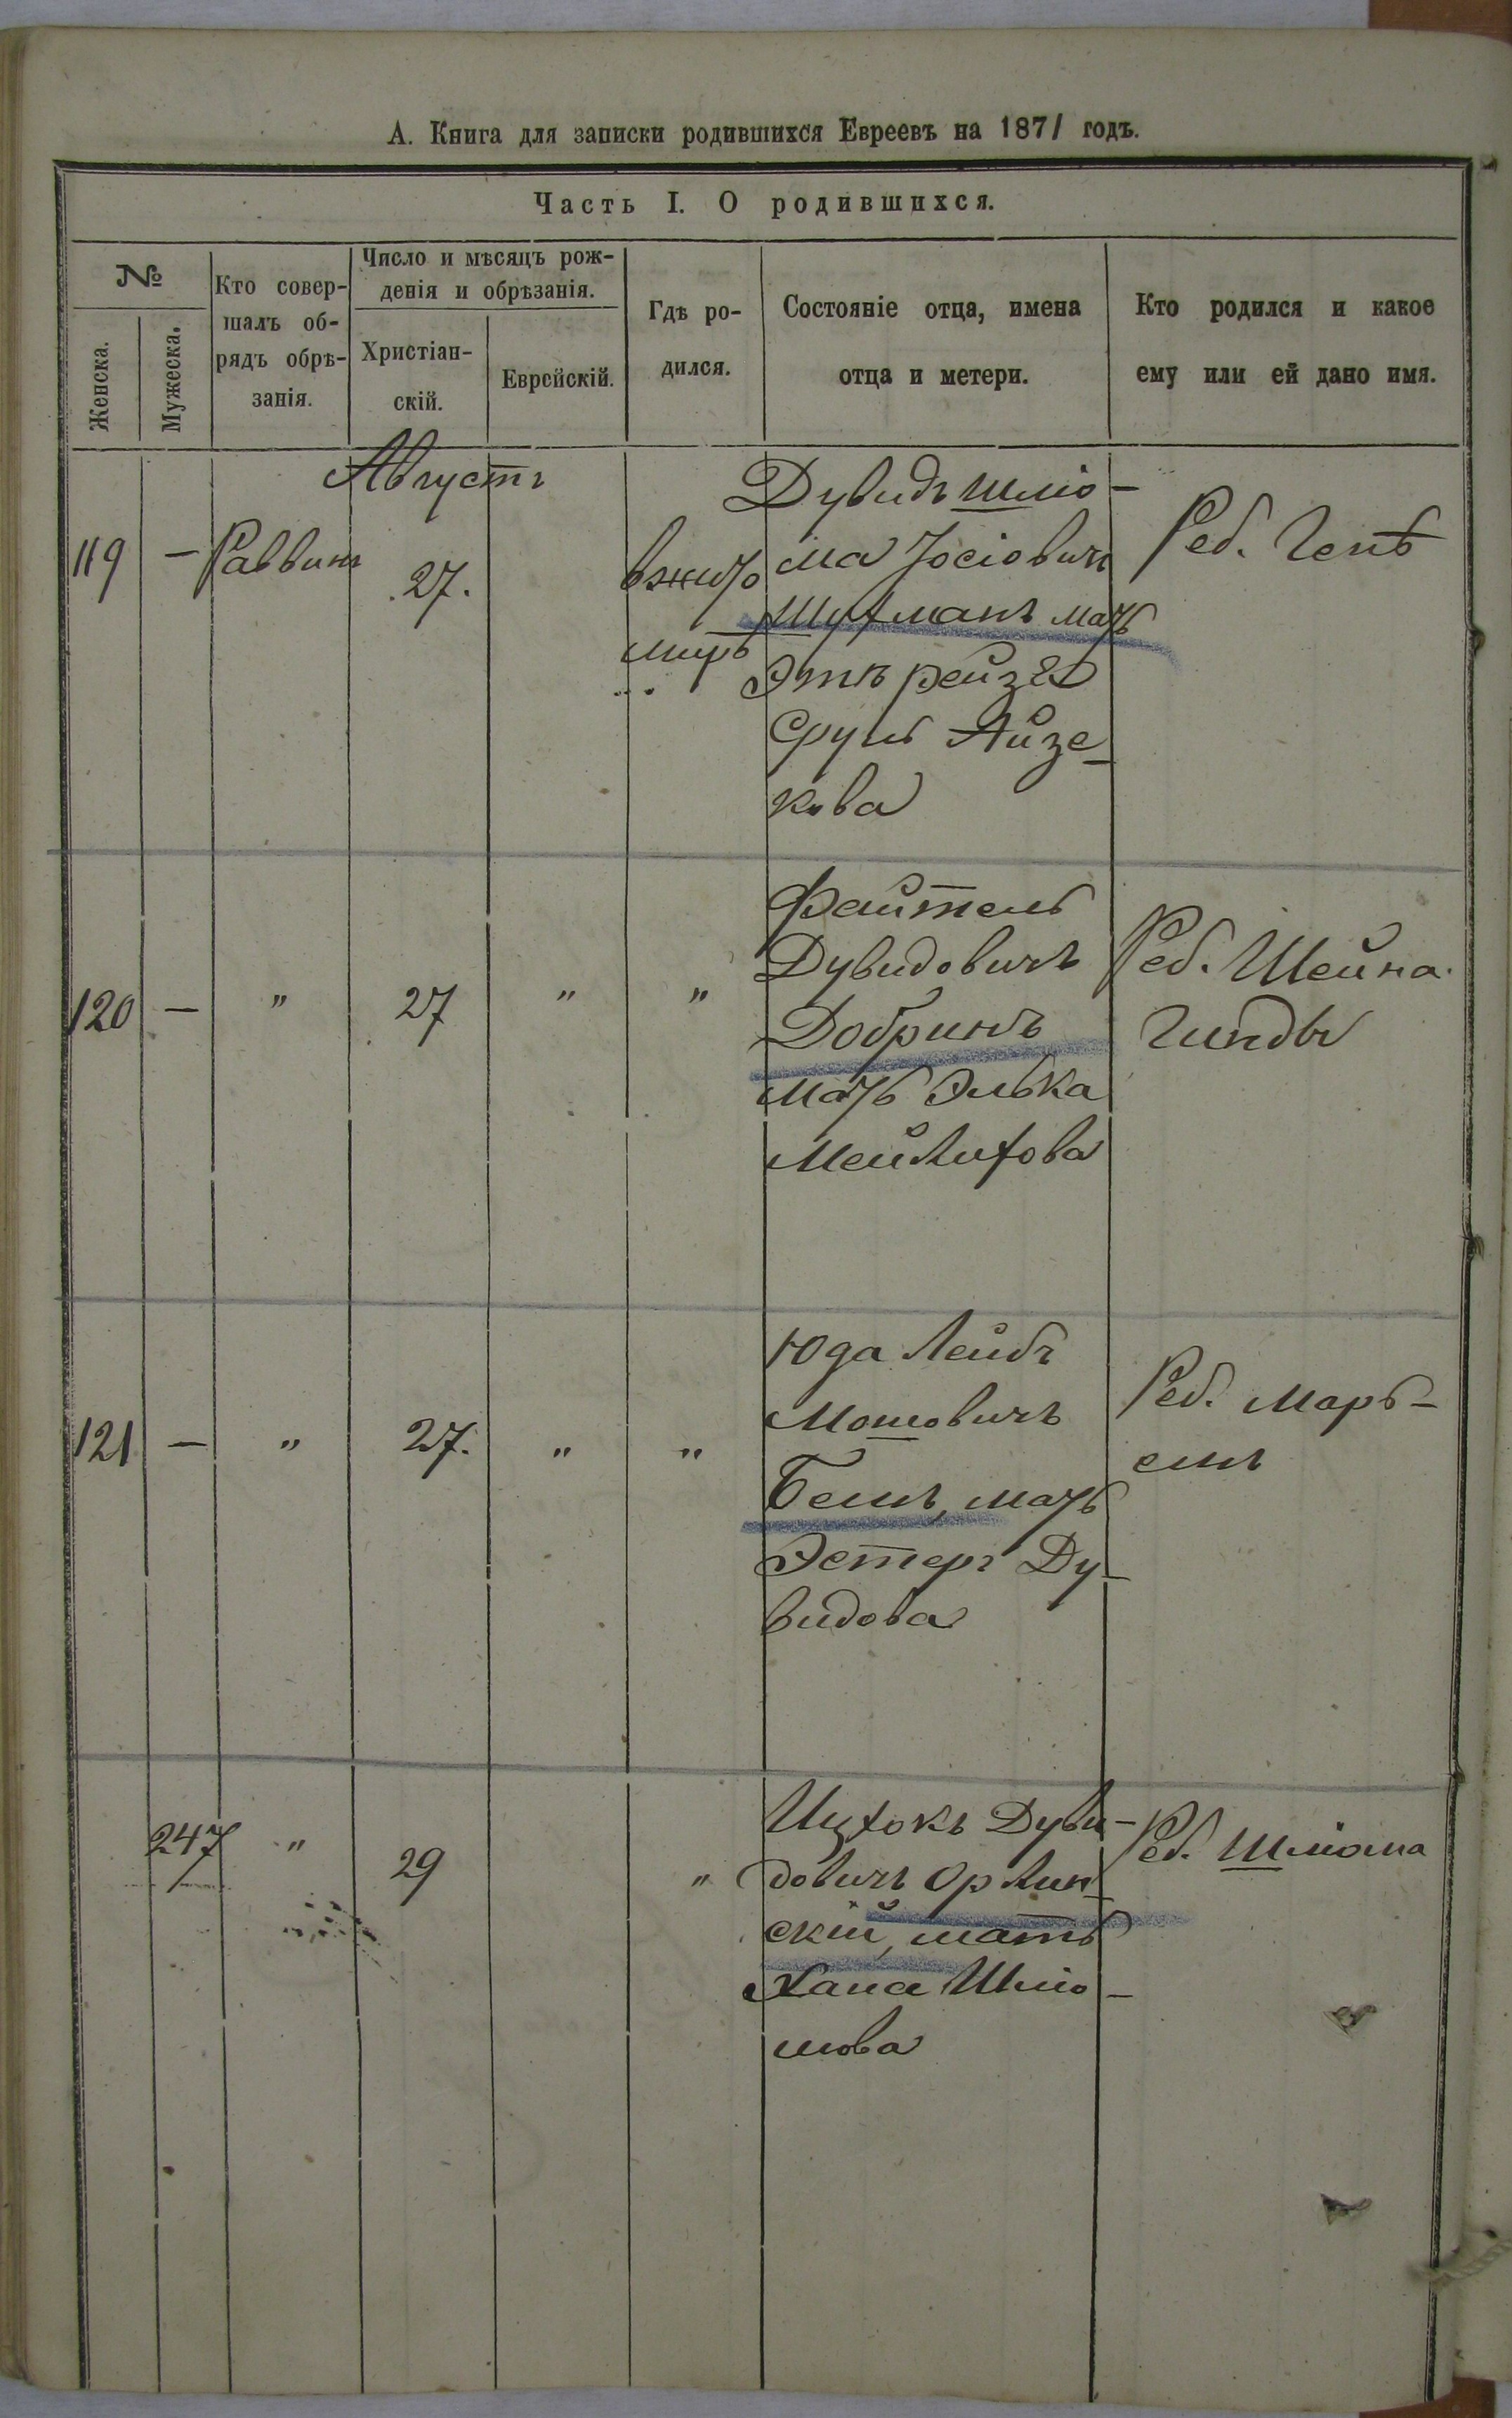 А. Книга для записки родившихся Евреевъ на 1871 годъ.
Часть I. О родившихся.
№
Женска.
Мужеска.
Кто совер-
шалъ об-
рядъ обрѣ-
занія.
Число и мѣсяцъ рож-
денія и обрѣзанія.
Христіан-
скій.
Еврейскій.
Гдѣ ро-
дился.
Состояніе отца, имена
отца и метери.
Кто родился и какое
ему или ей дано имя.
Августъ
119 — Раввинъ 27.
вжито
мирѣ
Дувидъ Шліо-
ма Іосіовичъ
Шухманъ мать
Этъ рейзя
Сруль Айзе-
кова
Реб. Геня
120 — " 27 " "
Файтель
Дувидовичъ
Добринъ
мать Элька
Мейлихова
Реб. Шейна
Гинды
121 — " 27. " "
Юда Лейбъ
Мошовичъ
Бемъ, мать
Эстеръ Ду-
видова
Реб. Марь-
емъ
247 " 29 "
Ицхокъ Дуви-
довичъ Орлин-
скій, мать
Хана Шлiо-
мова
Реб. Шліома